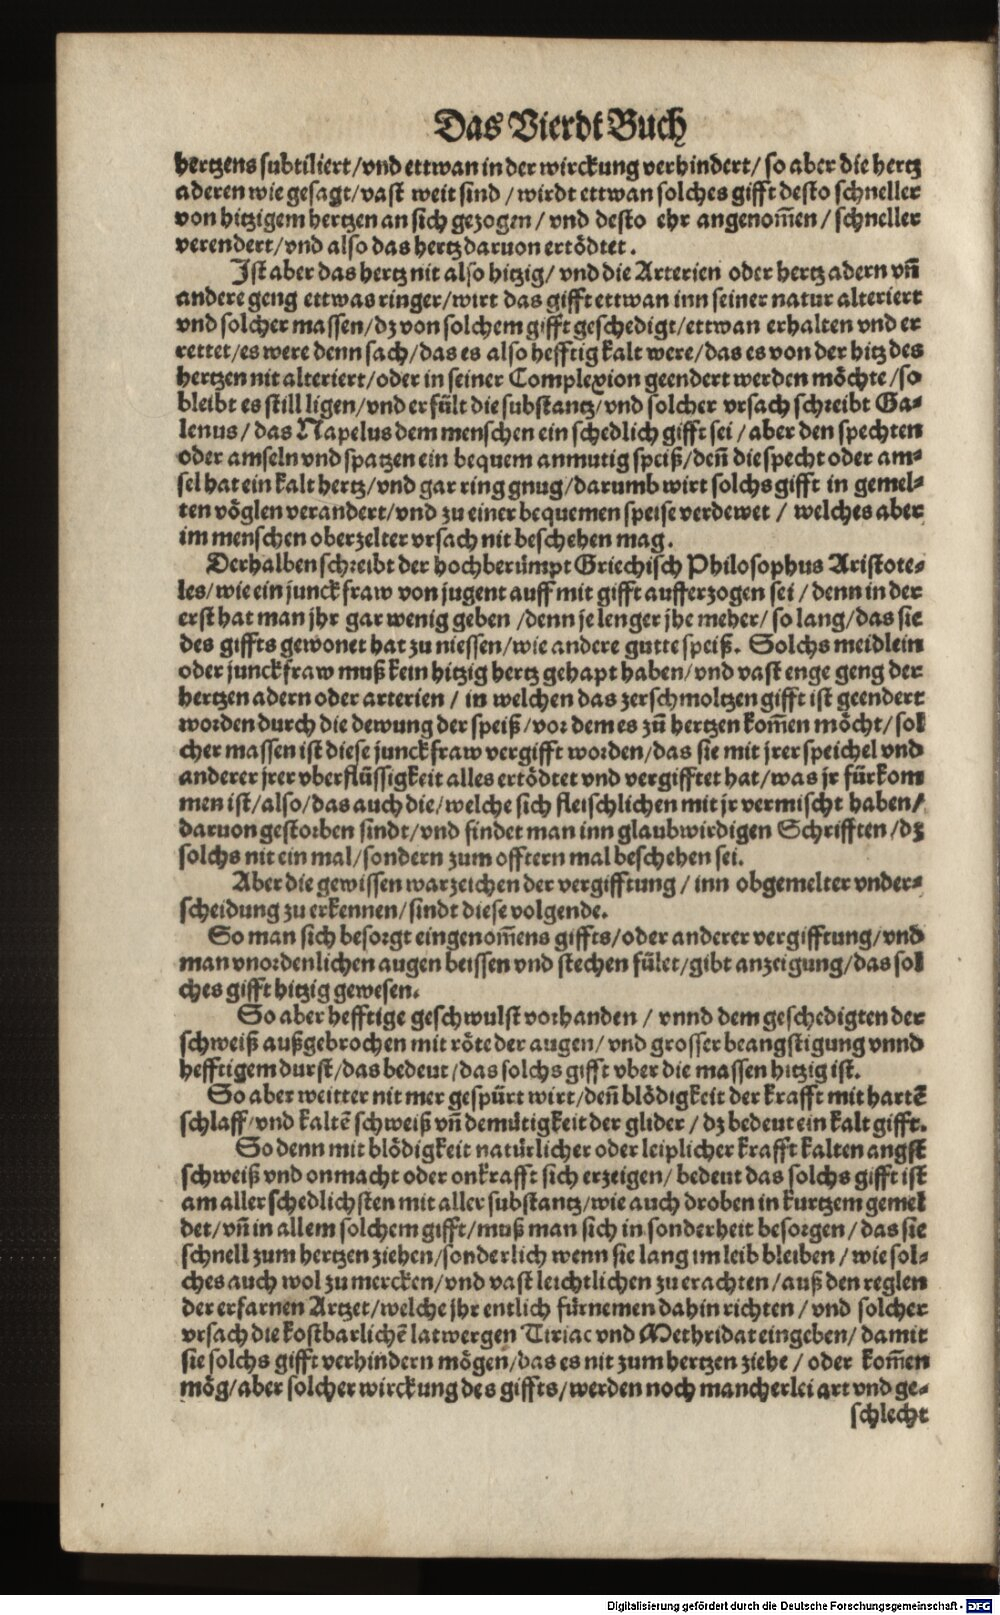 Das Vierdt Buch
hertzens subtiliert/vnd ettwan in der wirckung verhindert/ so aber die hertz
aderen wie gesagt/vast weit sind / wirdt ettwan solches gifft desto schneller
von hitzigem hertzen an sich gezogen / vnd desto ehr angenom̃en / schneller
verendert/vnd also das hertz daruon ertödtet.
Ist aber das hertz nit also hitzig/ vnd die Arterien oder hertz adern vñ
andere geng ettwas ringer/wirt das gifft ettwan inn seiner natur alteriert
vnd solcher massen/dz von solchem gifft geschedigt/ettwan erhalten vnd er
rettet/es were denn sach/das es also hefftig kalt were/das es von der hitz des
hertzen nit alteriert/oder in seiner Complexion geendert werden möchte /so
bleibt es still ligen/vnd erfült die substantz/vnd solcher vrsach schreibt Ga-
lenus / das Napelus dem menschen ein schedlich gifft sei / aber den spechten
oder amseln vnd spatzen ein bequem anmutig speiß/deñ die specht oder am-
sel hat ein kalt hertz/vnd gar ring gnug/darumb wirt solchs gifft in gemel-
ten vöglen verandert/vnd zu einer bequemen speise verdewet / welches aber
im menschen oberzelter vrsach nit beschehen mag.
Derhalben schreibt der hochberümpt Griechisch Philosophus Aristote-
les/wie ein junckfraw von jugent auff mit gifft aufferzogen sei / denn in der
erst hat man jhr gar wenig geben /denn je lenger jhe meher/ so lang/das sie
des giffts gewonet hat zu niessen/wie andere gutte speiß. Solchs meidlein
oder junckfraw muß kein hitzig hertz gehapt haben/vnd vast enge geng der
hertzen adern oder arterien / in welchen das zerschmoltzen gifft ist geendert
worden durch die dewung der speiß/vor dem es zů hertzen kom̃en möcht/sol
cher massen ist diese junckfraw vergifft worden/das sie mit jrer speichel vnd
anderer jrer vberflüssigkeit alles ertödtet vnd vergifftet hat/was jr fürkom
men ist/also/das auch die/welche sich fleischlichen mit jr vermischt haben/
daruon gestorben sindt/vnd findet man inn glaubwirdigen Schrifften /dz
solchs nit ein mal/sondern zum offtern mal beschehen sei.
Aber die gewissen warzeichen der vergifftung / inn obgemelter vnder-
scheidung zu erkennen/sindt diese volgende.
So man sich besorgt eingenom̃ens giffts/oder anderer vergifftung/vnd
man vnordenlichen augen beissen vnd stechen fület/gibt anzeigung/das sol
ches gifft hitzig gewesen.
So aber hefftige geschwulst vorhanden / vnnd dem geschedigten der
schweiß außgebrochen mit röte der augen/ vnd grosser beangstigung vnnd
hefftigem durst/das bedeut/das solchs gifft vber die massen hitzig ist.
So aber weitter nit mer gespürt wirt/deñ blödigkeit der krafft mit hartē
schlaff/vnd kaltē schweiß vñ demütigkeit der glider / dz bedeut ein kalt gifft.
So denn mit blödigkeit natürlicher oder leiplicher krafft kalten angst
schweiß vnd onmacht oder onkrafft sich erzeigen/ bedeut das solchs gifft ist
am aller schedlichsten mit aller substantz/wie auch droben in kurtzem gemel
det/vñ in allem solchem gifft/muß man sich in sonderheit besorgen / das sie
schnell zum hertzen ziehen/sonderlich wenn sie lang im leib bleiben / wie sol-
ches auch wol zu mercken/vnd vast leichtlichen zu erachten/auß den reglen
der erfarnen Artzet/welche jhr entlich fürnemen dahin richten / vnd solcher
vrsach die kostbarlichē latwergen Tiriac vnd Methridat eingeben/ damit
sie solchs gifft verhindern mögen/das es nit zum hertzen ziehe / oder kom̃en
mög/aber solcher wirckung des giffts/werden noch mancherlei art vnd ge-
schlecht
Digitalisierung gefördert durch die Deutsche Forschungsgemeinschaft - DFG